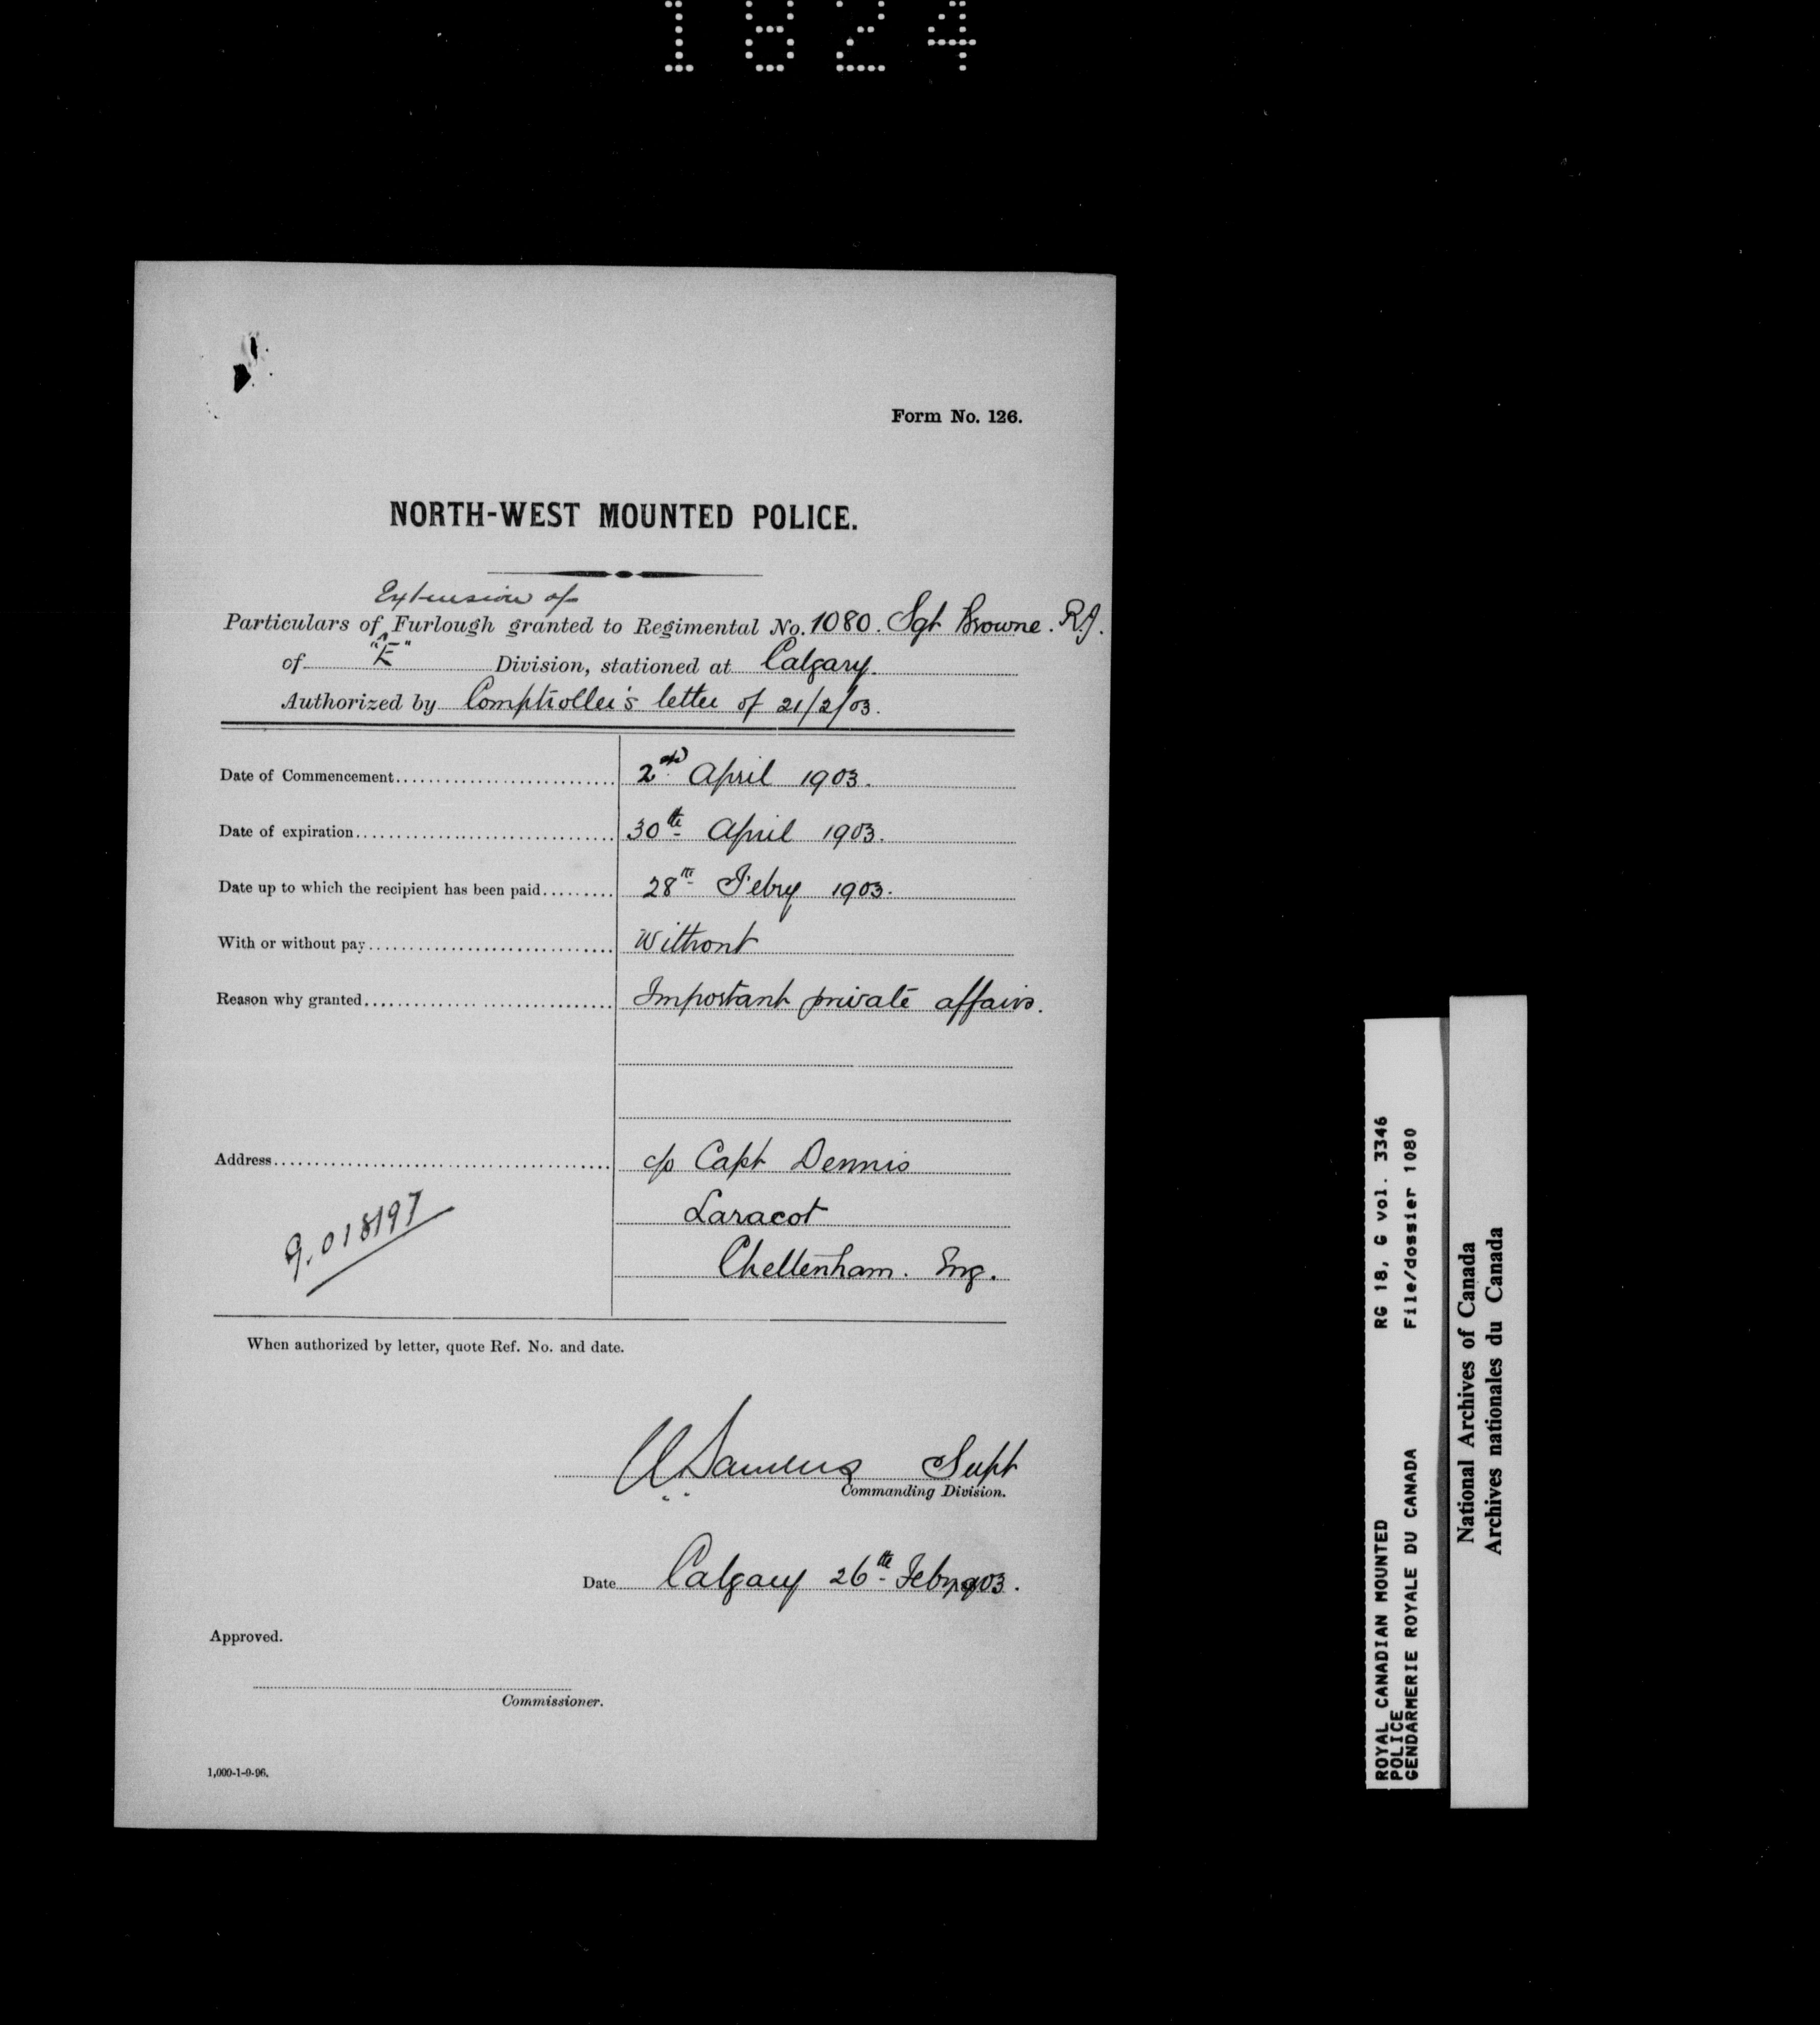 1824
Form No. 126.
NORTH-WEST MOUNTED POLICE.
Extension of
Particulars of ^ Furlough granted to Regimental No. 1080. Sgt Browne. R.J.
of "E" Division, stationed at Calgary.
Authorized by Comptroller's letter of 21/2/03.
Date of Commencement 2nd April 1903.
Date of expiration 30th April 1903.
Date up to which the recipient has been paid 28th Febry 1903.
With or without pay Without
Reason why granted Important private affairs.
Address c/o Capt Dennis
Laracot
Cheltenham. Eng.
When authorized by letter, quote Ref. No. and date.
Supt
Commanding Division.
Date Calgary 26th Feby 1903.
Approved.
Commissioner.
1,000-1-9-96.
ROYAL CANADIAN MOUNTED RG 18, G vol. 3346
POLICE
GENDARMERIE ROYALE DU CANADA File/dossier 1080
National Archives of Canada
Archives nationales du Canada